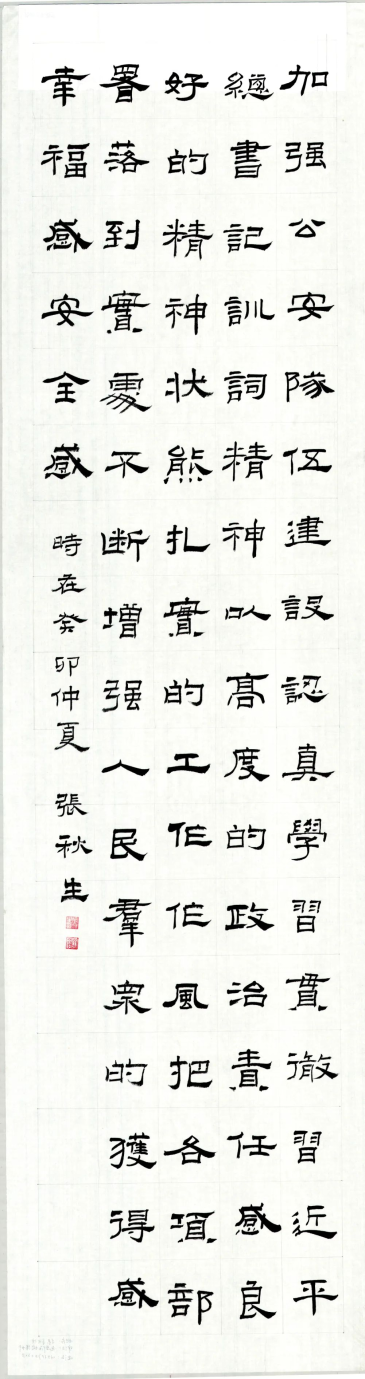 加强公安隊伍建設認真學習貫徹習近平
總書記訓詞精神以髙度的政治責任感良
好的精神状態扎實的工作作風把各項部
署落到實處不断增强人民羣衆的獲得感
幸福感安全感
時在癸卯仲夏 張秋生